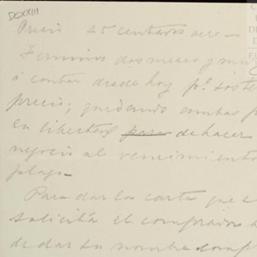 DCXXIII
Precio 25 centavos acre—
Termino dos meses y
á contar desde hoy pª
precio; quedando ambas p
en libertad para de hacer
negocio al vencimiento
plazo—
Para dar la carta que
solicita el comprador
de dar su nombre comp